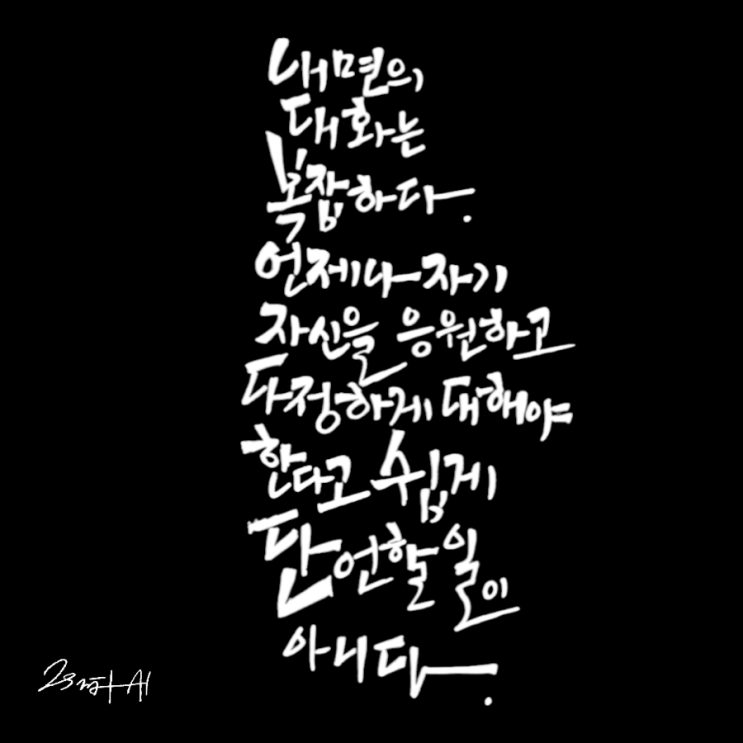 내면의
대화는
복잡하다.
언제나 자기
자신을 응원하고
다정하게 대해야
한다고 쉽게
단언할 일이
아니다.